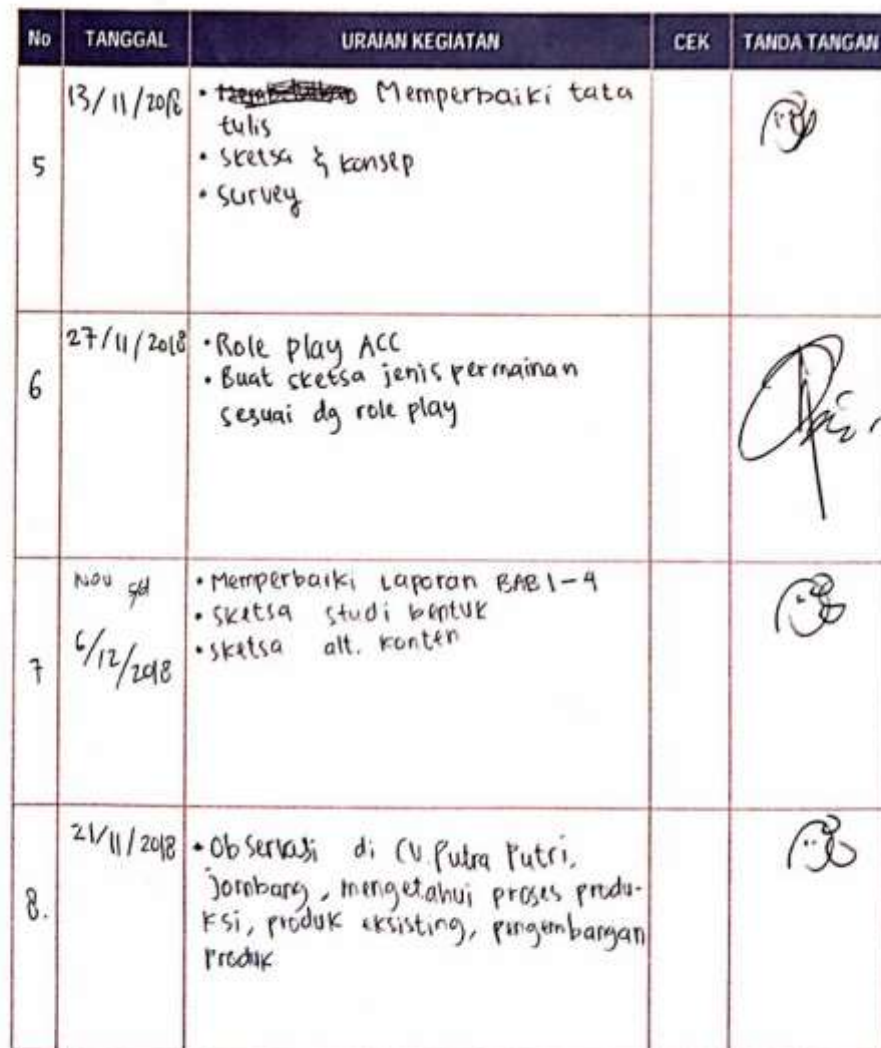 No TANGGAL URAIAN KEGIATAN CEK TANDA TANGAN
5 13/11/2018 • Memperbaiki tata
tulis
• sketsa & konsep
• survey
6 27/11/2018 • Role play ACC
• Buat sketsa jenis permainan
sesuai dg role play
7 Nov sd
6/12/2018
• Memperbaiki Laporan BAB 1-4
• sketsa studi bentuk
• sketsa alt. konten
8. 21/11/2018 • Observasi di CV. Putra Putri,
Jombang, mengetahui proses produ-
ksi, produk eksisting, pengembangan
produk